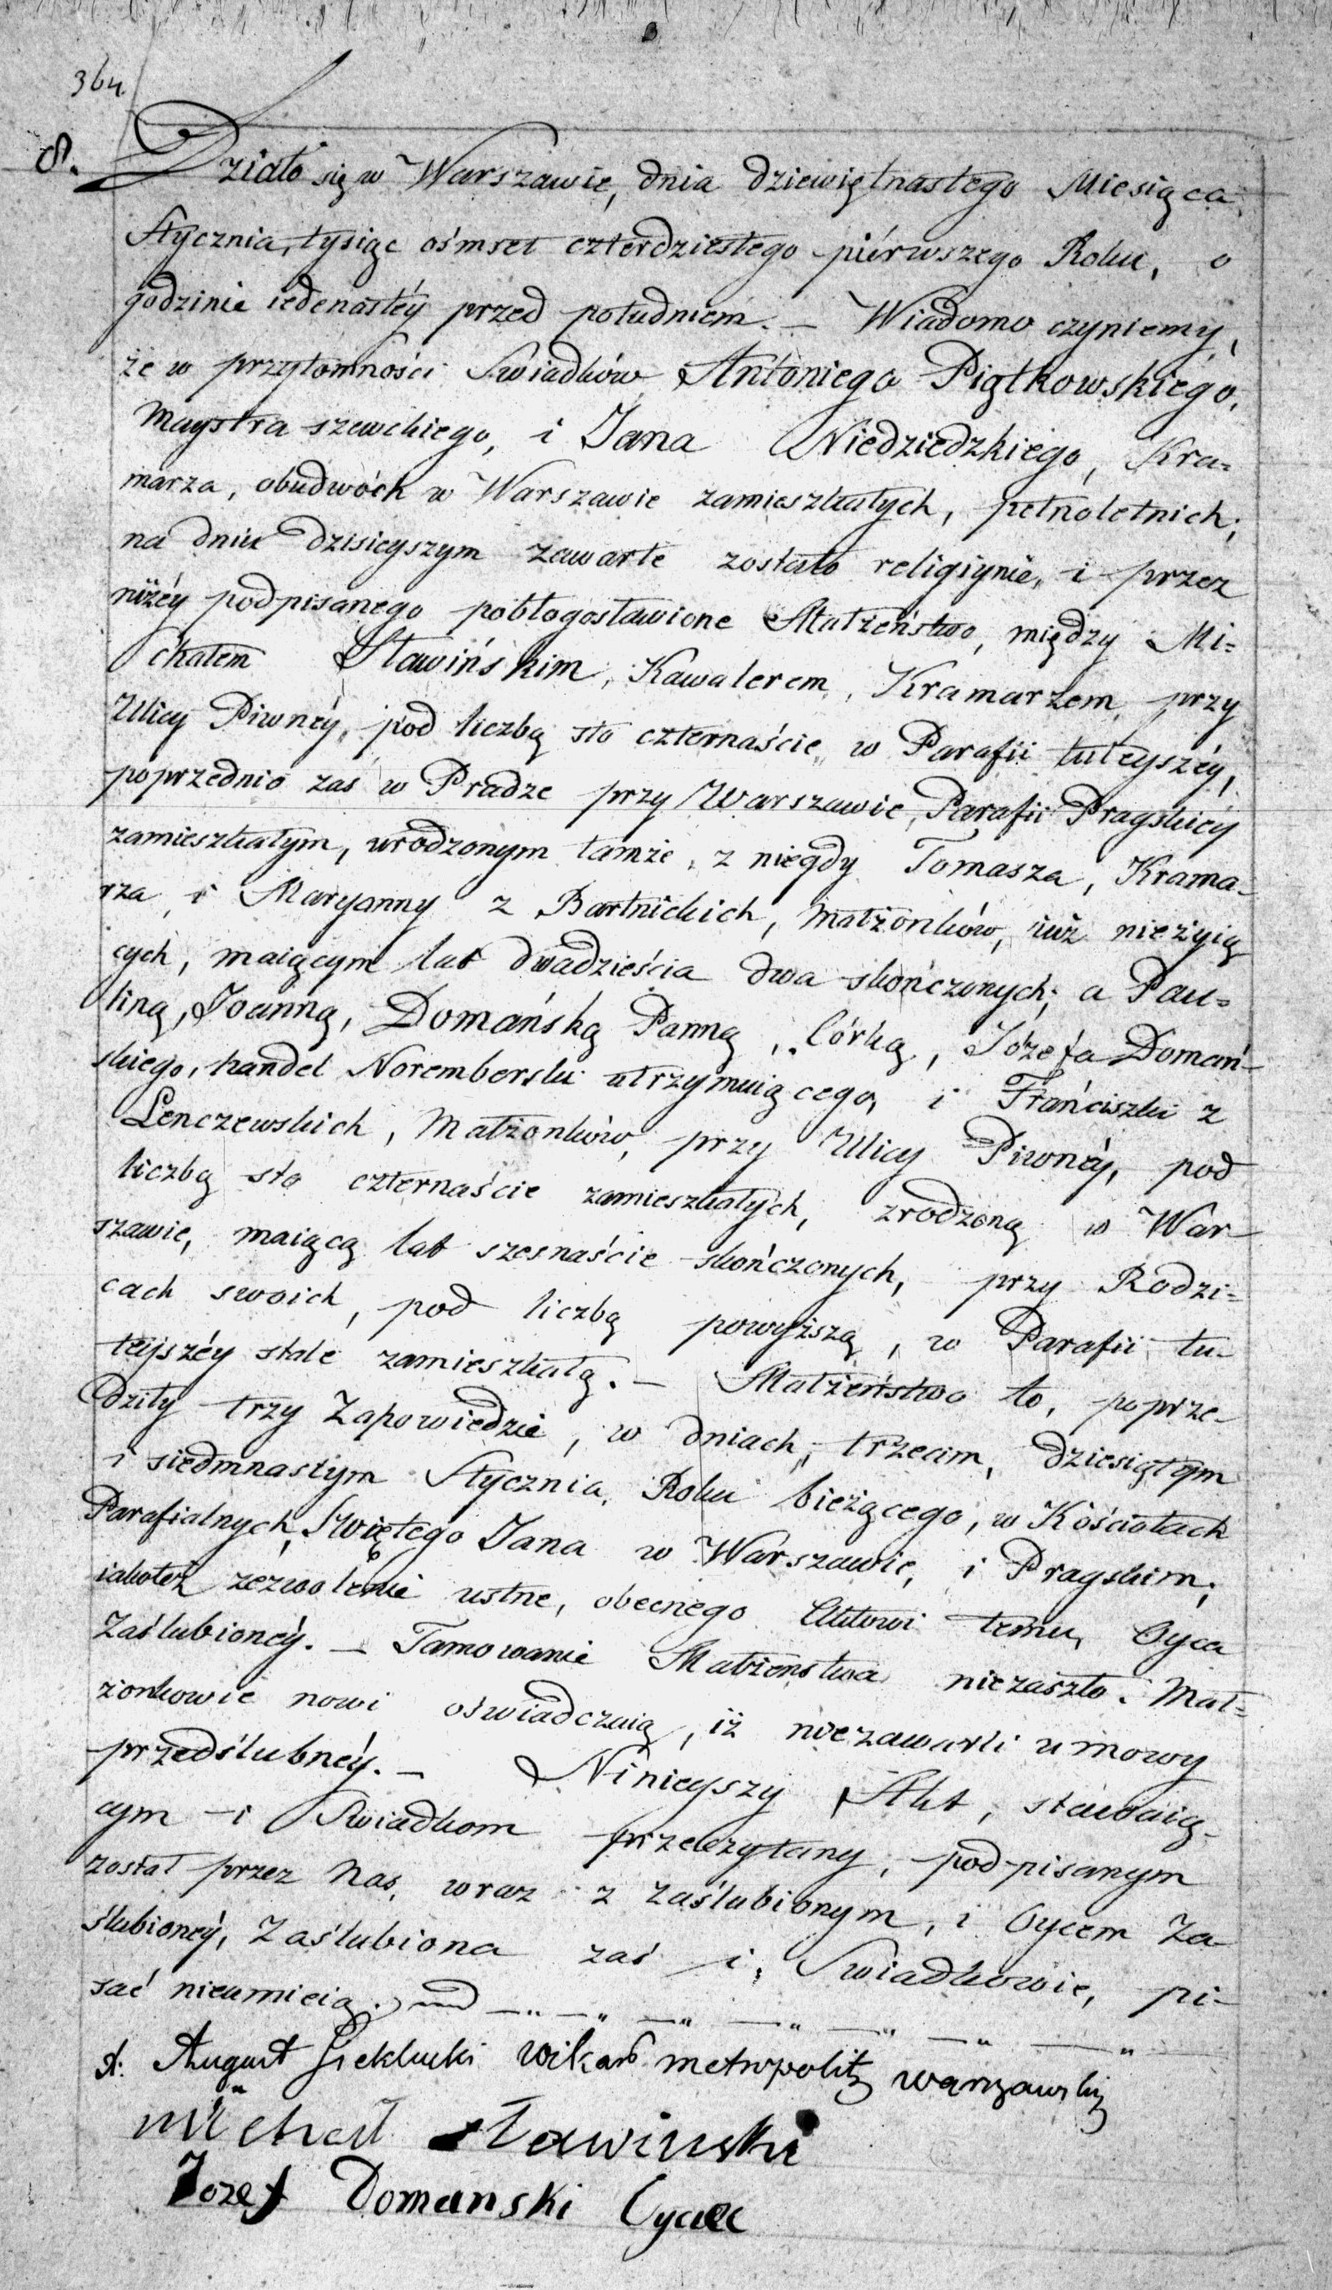 364.
8. Działo się w Warszawie, dnia dziewiętnastego Miesiąca
Stycznia, tysiąc ośmset czterdziestego piérwszego Roku, o
godzinie iedenastéy przed południem. — Wiadomo czyniemy,
że w przytomności Swiadków Antoniego Piątkowskiego,
Maystra szewckiego, i Jana Niedziedzkiego, Kra=
marza, obudwóch w Warszawie zamieszkałych, pełnoletnich;
na dniu dzisieyszym zawarte zostało religiynie, i przez
niżéy podpisanego pobłogosławione Małżeństwo, między Mi=
chałem Sławińskim, Kawalerem, Kramarzem, przy
Ulicy Piwnéy, pod liczbą sto czternaście, w Parafii tuteyszéy,
poprzednio zas w Pradze przy Warszawie, Parafii Pragskiéy
zamieszkałym, urodzonym tamże, z niegdy Tomasza, Krama-
rza, i Maryanny z Bartnickich, Małżonków, iuż nieżyią
cych, maiącym lat dwadzieścia dwa skończonych; a Pau=
liną, Joanną, Domańską Panną, Córką, Józefa Domań-
skiego, handel Noremberski utrzymuiącego, i Frańciszki z
Lenczewskich, Małżonków, przy Ulicy Piwnéy, pod
liczbą sto czternaście zamieszkałych, zrodzoną w War-
szawie, maiącą lat szesnaście skończonych, przy Rodzi=
cach swoich, pod liczbą powyższą, w Parafii tu-
teyszéy stale zamieszkałą. — Małżeństwo to, poprze-
dziły trzy Zapowiedzie, w dniach, trzecim, dziesiątym
i siedmnastym Stycznia, Roku bieżącego, w Kościołach
Parafialnych, Swiętego Jana w Warszawie, i Pragskim;
iakoteż zezwolenie ustne, obecnego Aktowi temu, Oyca
Zaślubionéy. — Tamowanie Małżenstwa niezaszło. Mał=
żonkowie nowi oświadczaią, iż niezawarli umowy
przedślubnéy. — Ninieyszy Akt, stawaią-
cym i Swiadkom przeczytany, podpisanym
został przez Nas, wraz z Zaślubionym, i Oycem Za-
ślubionéy, Zaślubiona zaś i Swiadkowie, pi-
sać nieumieią.
X. August Sieklucki wikar. metropolity warszawskiy
Michał Sławinski
Jozef Domanski Oyciec